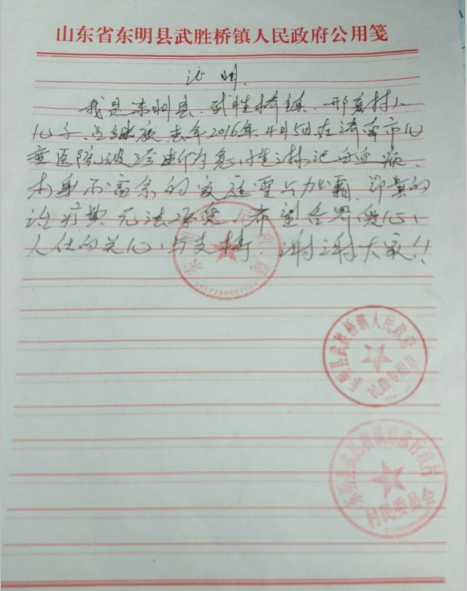 山东省东明县武胜桥镇人民政府公用笺
证明
我是东明县武胜桥镇 村人
儿子 去年2016年4月5日在济南市儿
童医院 被 诊断为急性淋 白血病
本身不富余的家庭雪上加霜 昂贵的
治疗费无法承受,希望各界爱心
人仕的关心,与支持 谢谢大家!!
东明县武胜桥镇人民政府
民政专用章
村民委员会